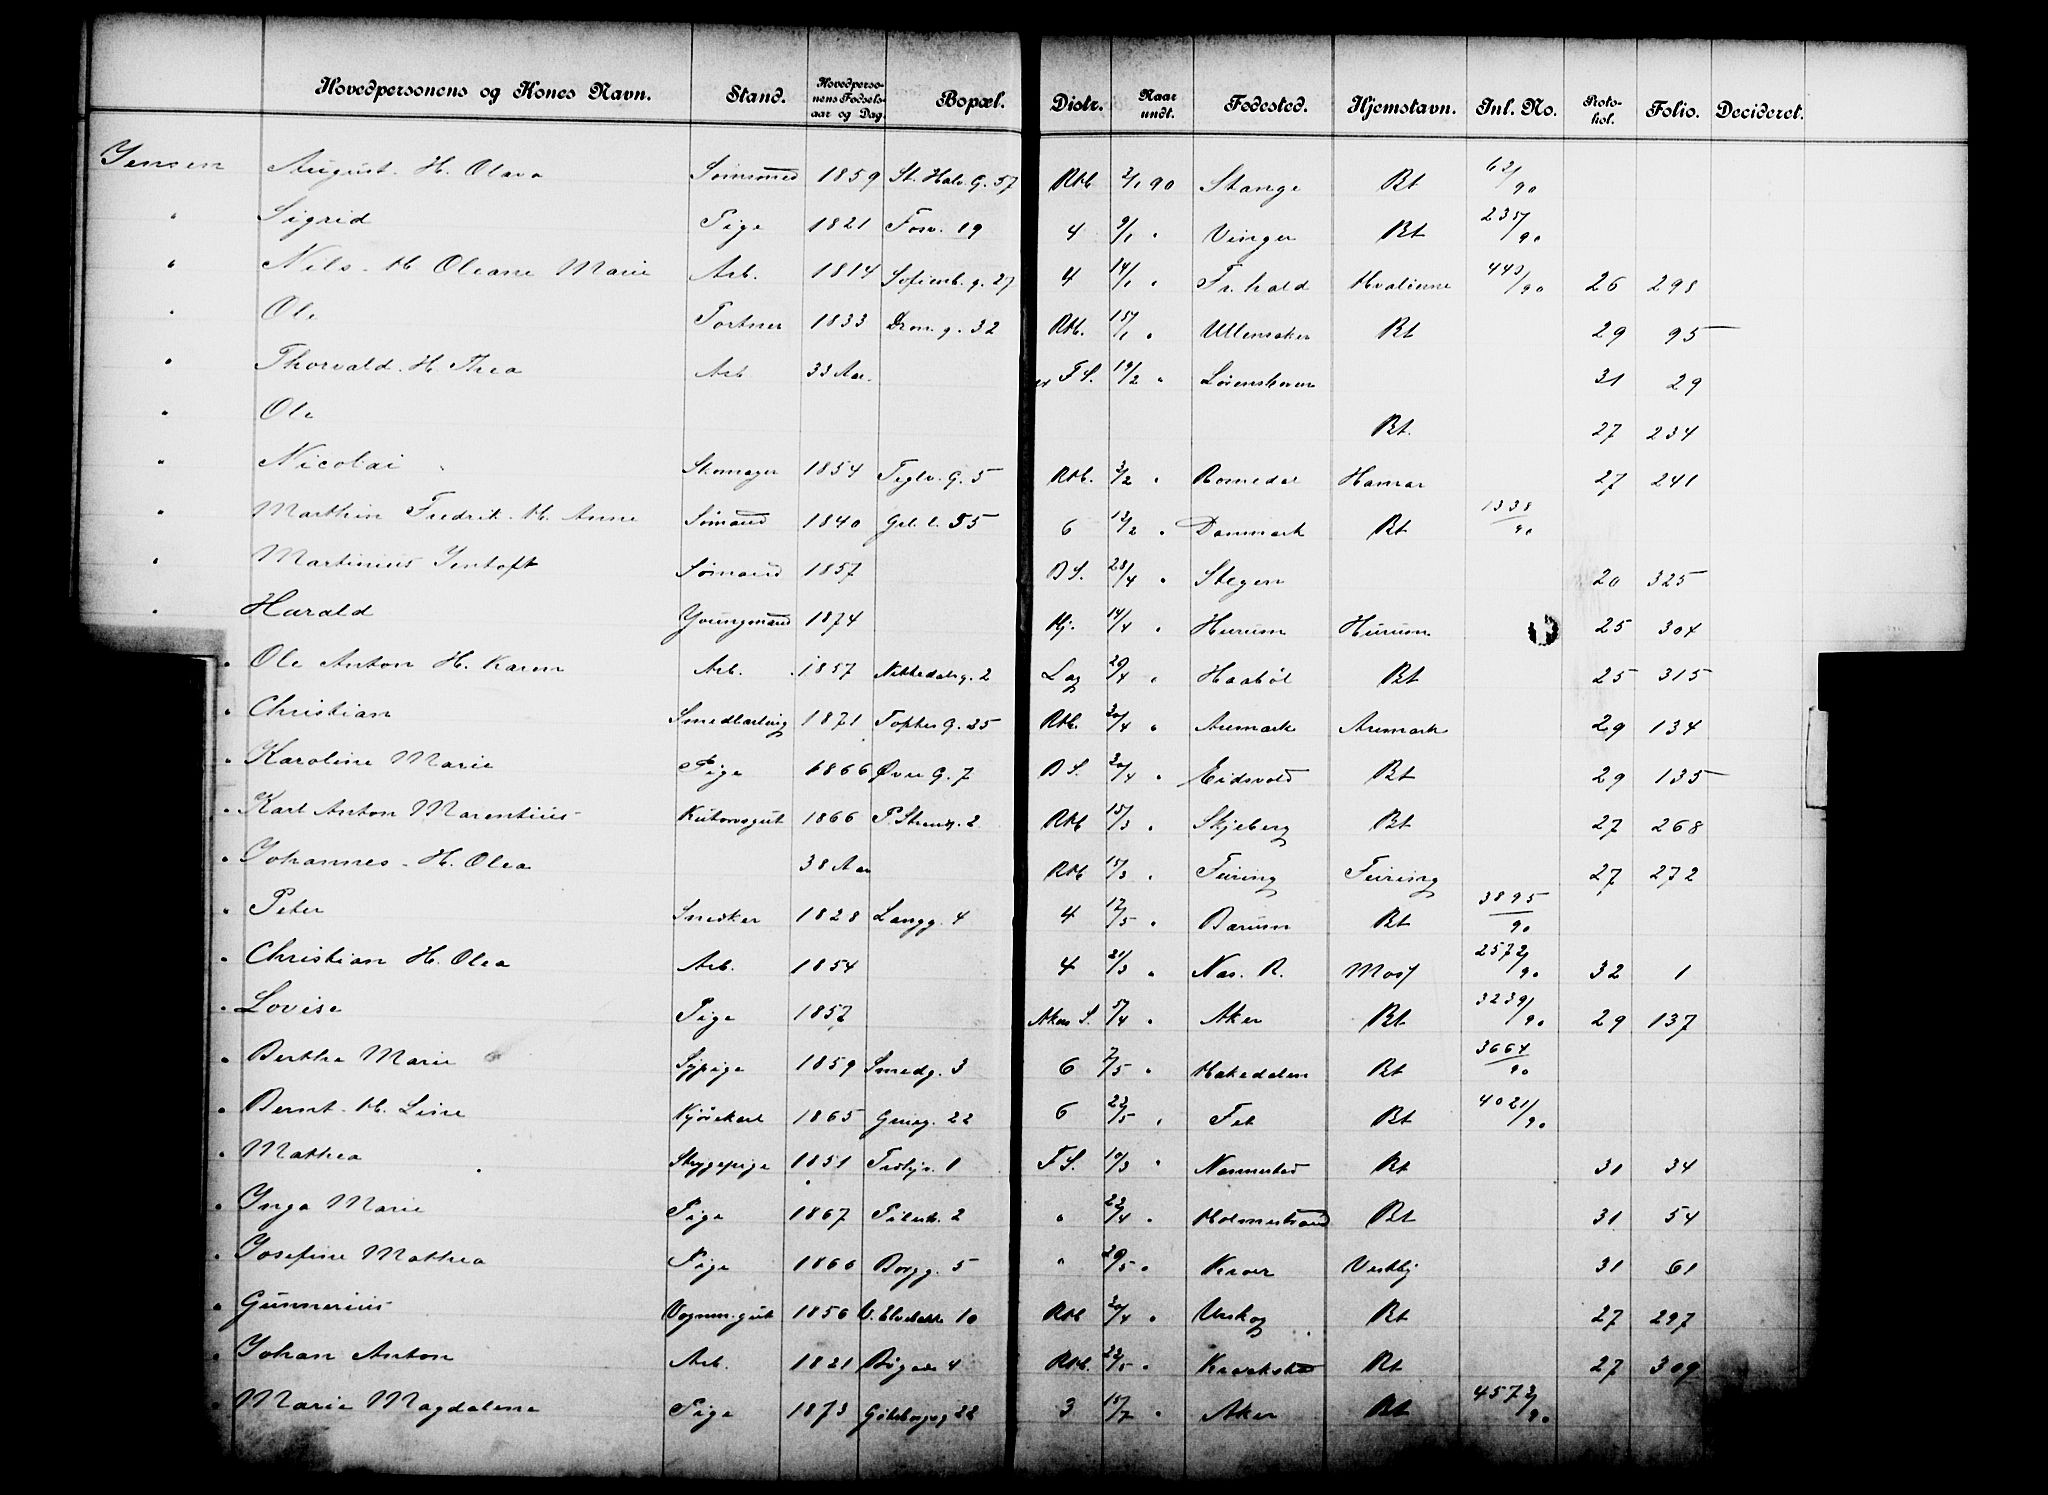 Hovedpersonens og Kones Navn. Stand. Hovedpersonens Fødselsaar og Dag. Bopæl. Distr. Naar undt. Fødested. Hjemstavn. Inl. No. Protokol. Folio. Decideret.
Jensen August. H. Olava 1859 St. Halv. G. 57 Rth. 2/1 90 Stange Bt 63/90
" Sigrid Pige 1821 Fosv. 19 4 9/1 " Vinger Bt 235/90
" Nils. H. Oleane Marie Arb. 1814 Sofienb. g. 27 4 14/1 " Fr. hald Hvaløerne 443/90 26 298
" Ole Portner 1833 Dron. g. 32 Rth. 15/1 " Ullensaker Bt 29 95
" Thorvald. H. Thea Arb 33 Aar. F S. 19/2 " 31 29
" Ole Bt. 27 234
" Nicolai Skomager 1854 Teglv. G. 5 Rth. 3/2 " Romedal Hamar 27 241
" Marthin Fredrik. H. Anne Sømand 1840 Grl. l. 55 6 13/2 " Danmark Bt 1338/90
" Martinius Jentoft Sømand 1857 B S. 28/4 " Stegen 20 325
" Harald Youngmand 1874 Hj. 14/4 " Hurum Hurum 25 304
" Ole Anton H. Karen Arb. 1857 Nittedalsg. 2 Lag 26/4 " Haabøl Bt 25 315
" Christian Smedlærling 1871 Toftes G. 25 Rth. 20/4 " Aremark Aremark 29 134
" Karoline Marie Pige 1866 Øvre G. 7 B S. 20/4 " Eidsvold Bt 29 135
" Karl Anton Marentius 1866 P. Strems. 2 Rth 15/3 " Skjeberg Bt 27 268
" Johannes. H. Olea 38 Aar Rth 15/3 " Feiring Feiring 27 272
" Peter Snedker 1828 Langg. 4 4 17/5 " Bærum Bt 3895/90
" Christian H. Olea Arb. 1854 4 21/3 " Nas. R. Moss 2572/90 32 1
" Lovise Pige 1857 Akers S. 5/4 " Aker Bt 3239/90 29 137
" Berthe Marie Sypige 1859 Smedg. 3 6 7/5 " Hakedalen Bt 3664/90
" Bernt. H. Line Kjørekarl 1865 Grueg. 22 6 22/5 " Fet Bt 4021/90
" Mathea Strygepige 1851 1 F S. 10/3 " Nannestad Bt 31 34
" Inga Marie Pige 1867 Pilestr. 2 " 22/4 " Holmestrand Bt 31 54
" Josefine Mathea Pige 1866 Borgg. 5 " 29/5 " Kroer Vestby 31 61
" Gunnerius Vognm. gut 1856 V. Elvebakke 10 Rth 20/4 " Urskog Bt 27 297
" Johan Anton Arb. 1821 4 Rth. 22/5 " Bt 27 309
" Marie Magdalene Pige 1873 Göteborgsg 22 3 15/7 " Aker Bt 4573/90